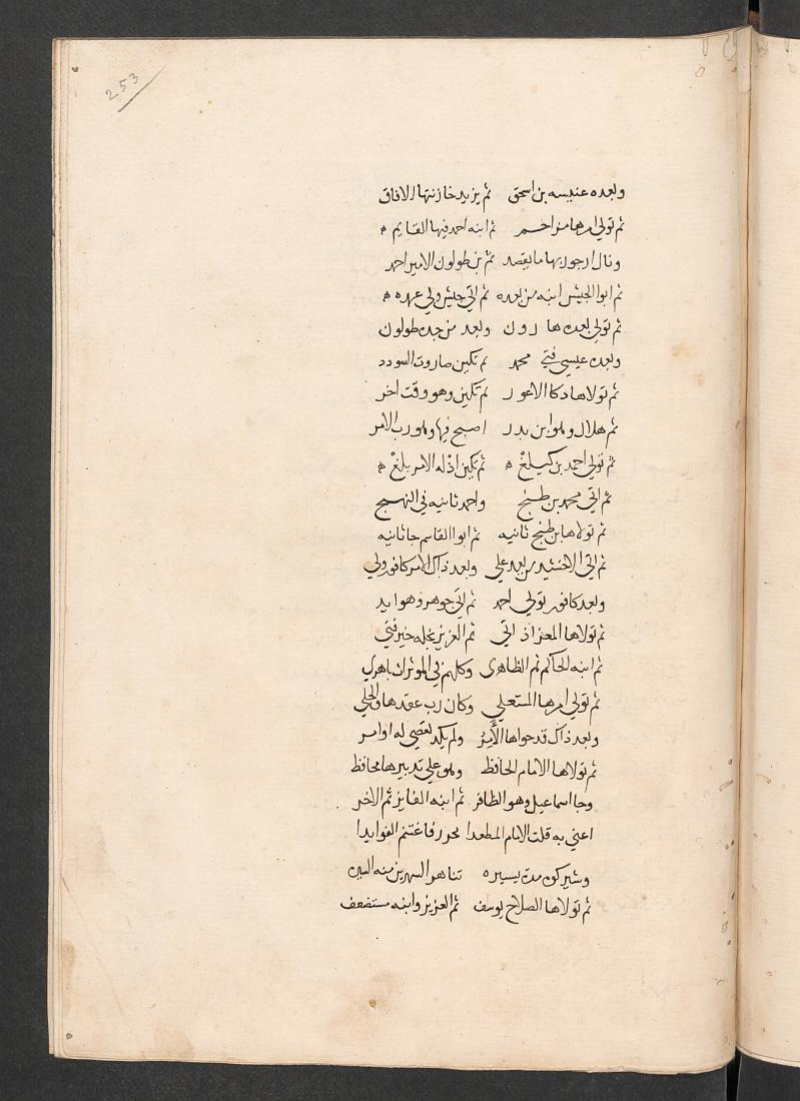 253
وبعده عنبسه بن اسحق ثم يزيد خازنها الافاق
ثم تولي امرها مزاحم ثم ابنه احمد فيها القايم
ونال ارجوز بها ما يقصد ثم بن طولون الامير احمد
ثم ابو الجيش ابنه من بعده ثم اتي جيش ولي عهده
ثم تولي بعده هارون وبعد من جده طولون
وبعده عيسي فتي محمد ثم تكين السودد
ثم تولاها دكا الاعور ثم تكين وهو وقت اخر
ثم هلال وهو ابن بدر اصبح فيها وهو رب الامر
ثم تولي احمد بن كيلغ ثم تكين اذ له الامر بلغ
ثم اتي محمد بن طنج واحمد ثانيه في النهج
ثم تولاها بن طنج ثانيه ثم ابوا القاسم جا ثانيه
ثم اتي الاخشيد من بعد علي وبعد ذاك الامر كافور ولي
وبعد كافور تولي احمد ثم اتي جوهر وهو ايد
ثم تولاها المعز اذ اتي ثم العزيز نجله خير فتي
ثم ابنه الحاكم ثم الظاهري وكلهم في الموثرات باهري
ثم تولي امرها المستعلي وكان رب عقدها والحلي
وبعد ذاك قد حواها الآمر ولم يكد تعصي له اوامر
ثم تولاها الامام الحافظ وهو علي تدبيرها محافظ
وجا اسماعيل وهو الظافر ثم ابنه الفايز ثم الاخر
اعني به قلت الامام فاغتنم الفوايدا
وشيركوه مدة يسيره
ثم تولاها الصلاح يوسف ثم العزيز وابنه مستضعف